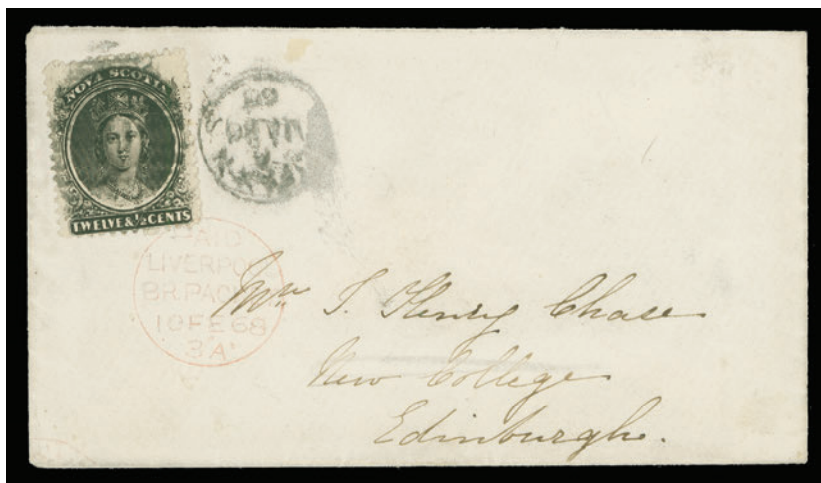 NOVA SCOTIA
TWELVE & ½ CENTS
PAID
LIVERPOOL
BR. PACKET
10 FE 68
3A
Mr J. Henry Chase
New College
Edinburgh.